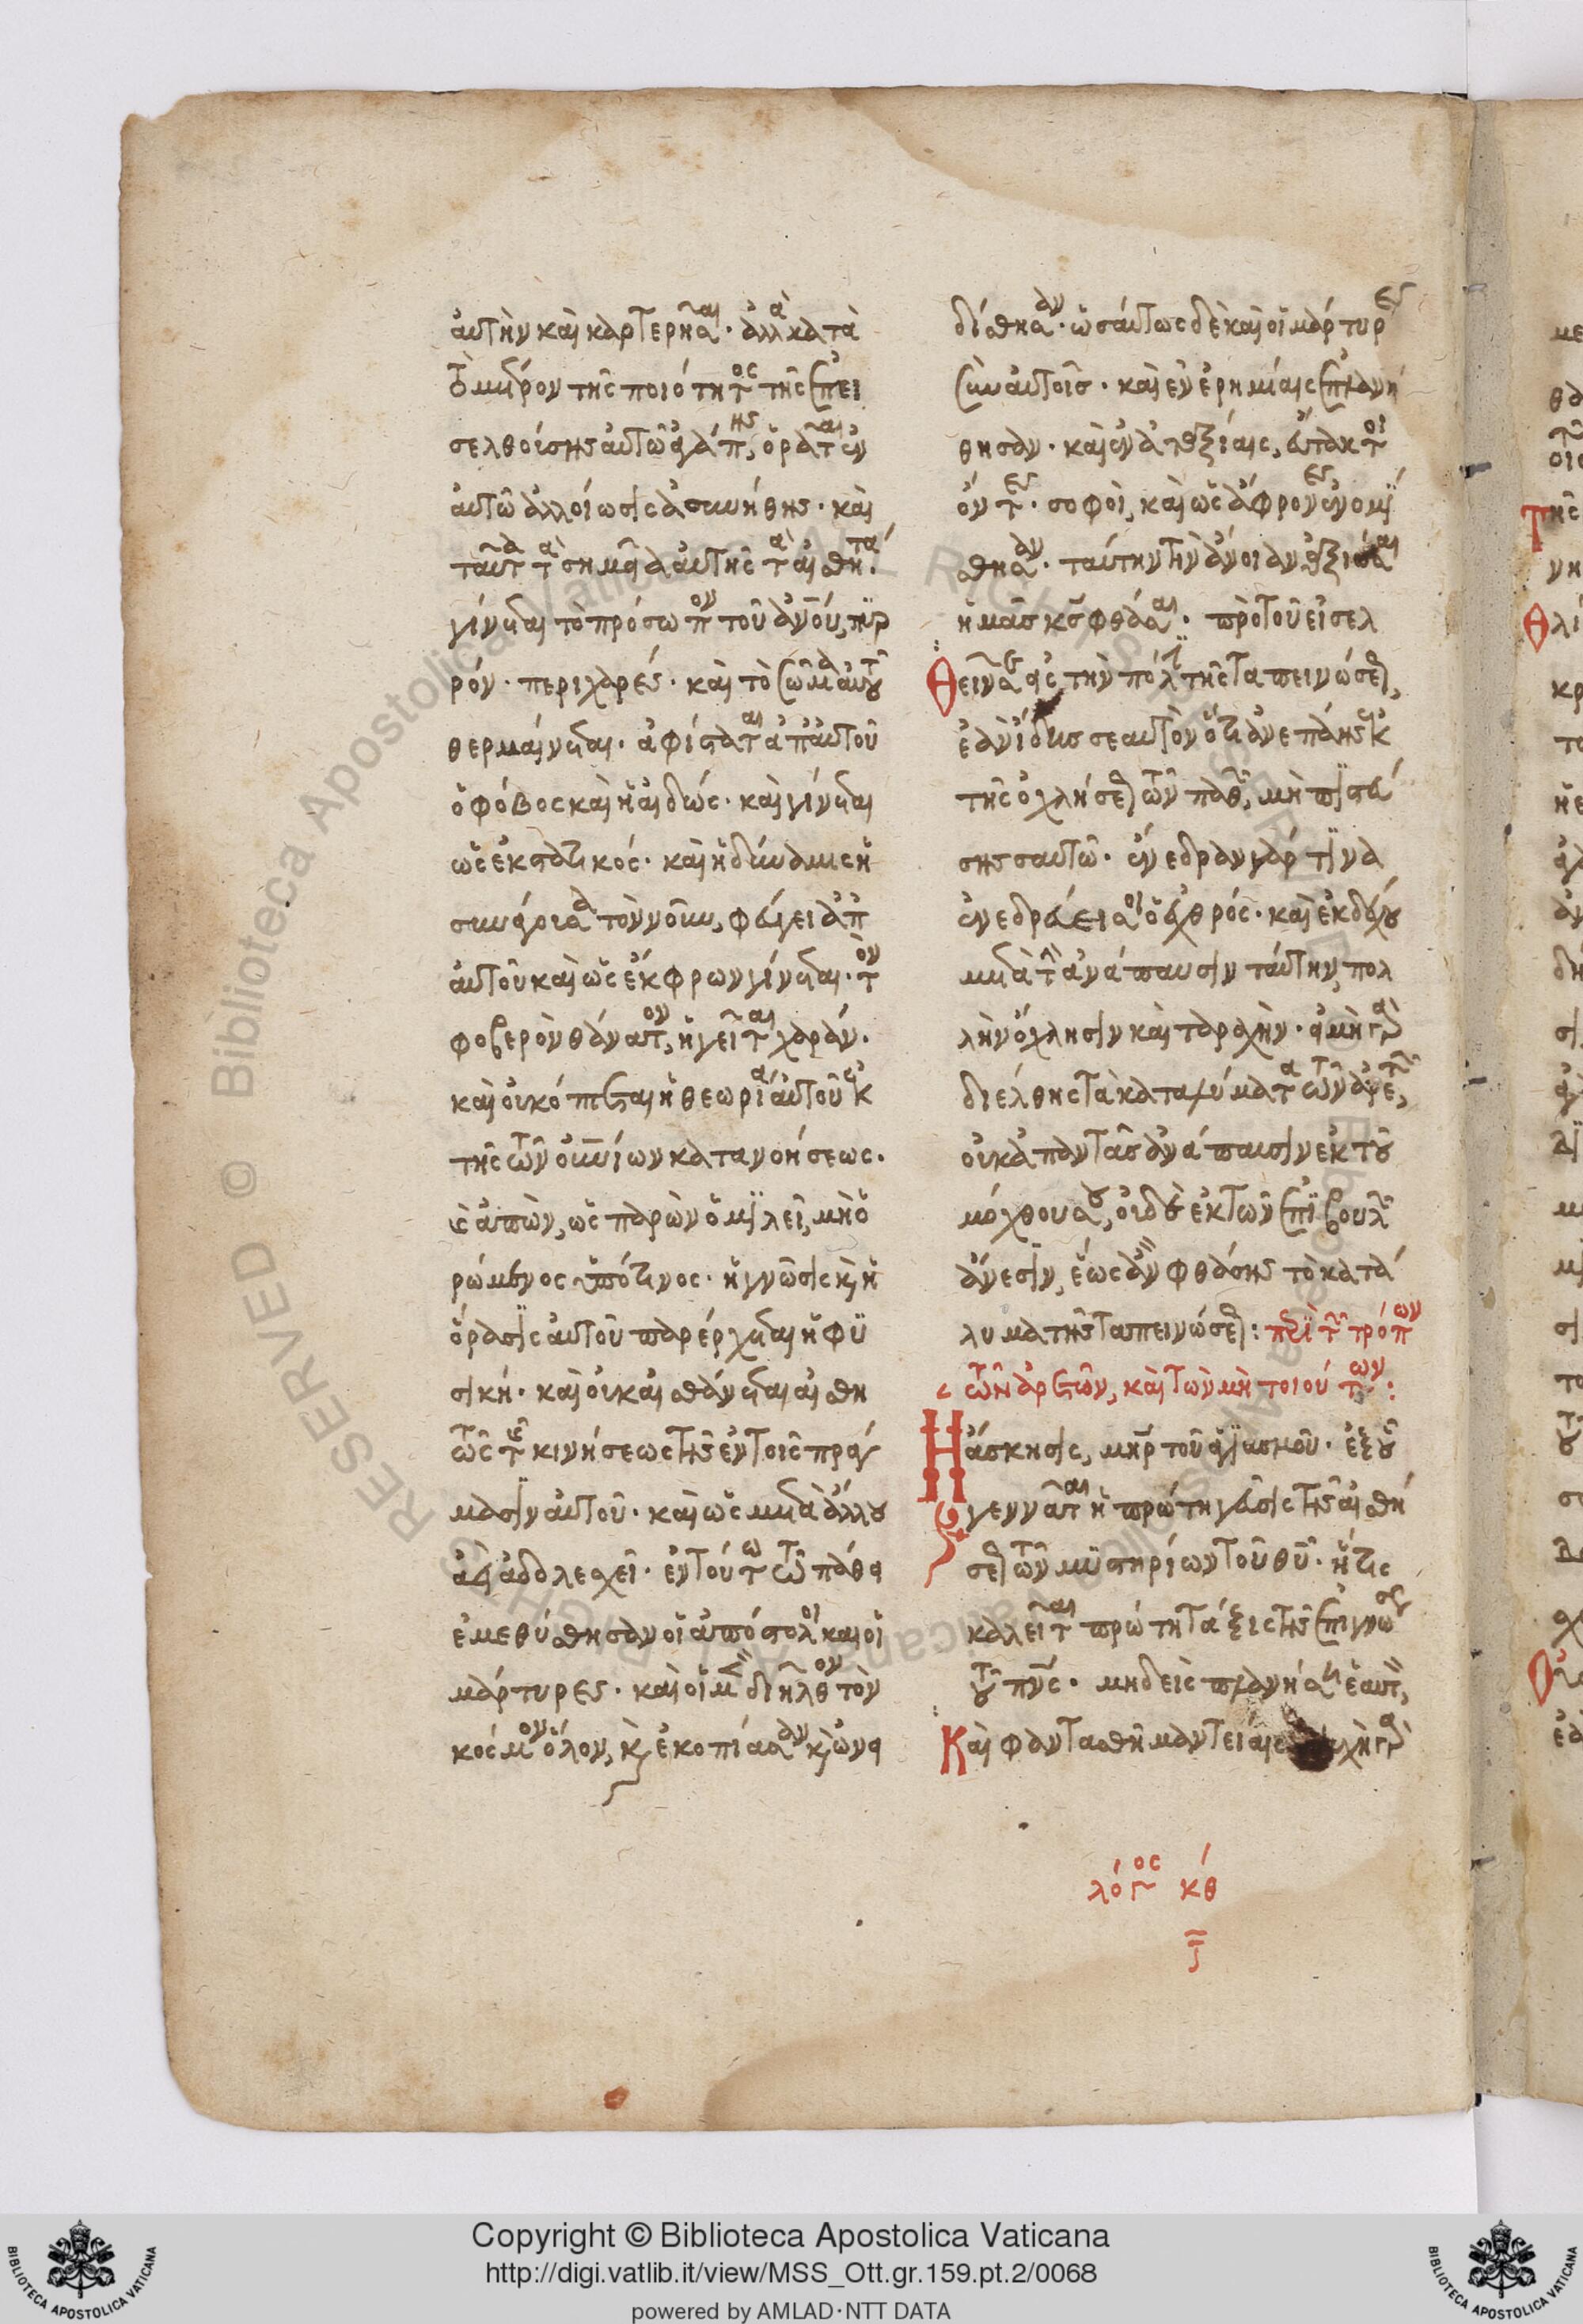 αὐτὴν καὶ καρτερῆσαι· ἀλλὰ κατὰ
τὸ μέτρον τῆς ποιότητος τῆς ἐπει
σελθούσης αὐτῷ ἀγάπης, ὁρᾶται ἐν
αὐτῷ ἀλλοίωσις ἀσυνήθης· καὶ
ταῦτα τὰ σημεῖα αὐτῆς τὰ αἰσθητά·
γίνεται τὸ πρόσωπον τοῦ ἀνοῦ, πυρ
ρόν· περιχαρές· καὶ τὸ σῶμα αὐτοῦ
θερμαίνεται· ἀφίσταται ἀπ' αὐτοῦ
ὁ φόβος καὶ ἡ αἰδώς· καὶ γίνεται
ὡς ἐκστατικός· καὶ ἡ δύναμις ἡ
συνάγουσα τὸν νοῦν, φεύγει ἀπ
αὐτοῦ καὶ ὡς ἔκφρων γίνεται· τὸν
φοβερὸν θάνατον, ἡγεῖται χαράν·
καὶ οὐ κόπτεται ἡ θεωρία αὐτοῦ ἐκ
τῆς τῶν οὐνίων κατανοήσεως·
καὶ ἀπών, ὡς παρὼν ὁμιλεῖ, μὴ ὁ
ρώμενος ὑπό τινος· ἡ γνῶσις καὶ ἡ
ὅρασις αὐτοῦ παρέρχεται ἡ φυ
σική· καὶ οὐκ αἰσθάνεται αἰσθη
τῶς τῆς κινήσεως τῆς ἐν τοῖς πράγ
μασιν αὐτοῦ· καὶ ὡς μετὰ ἄλλου
ἀεὶ ἀδολεσχεῖ· ἐν τούτῳ τῷ πάθει
ἐμεθύσθησαν οἱ ἀπόστολοι καὶ οἱ
μάρτυρες· καὶ οἱ μὲν διῆλθον τὸν
κόσμον ὅλον, καὶ ἐκοπίασαν καὶ ὠνει
δίσθησαν· ὡσαύτως δὲ καὶ οἱ μάρτυρες
σὺν αὐτοῖς· καὶ ἐν ἐρημίαις ἐπλανή
θησαν· καὶ ἐν ἀταξίαις, εὔτακτοι
ὄντες· σοφοὶ, καὶ ὡς ἄφρονες ἐνομί
σθησαν· ταύτην τὴν ἄνοιαν ἀξιῶσαι
ἡμᾶς κς φθάσαι· πρὸ τοῦ εἰσελ
θεῖν σε εἰς τὴν πόλιν τῆς ταπεινώσεως,
ἐὰν ἴδῃς σεαυτὸν ὅτι ἀνεπάης ἐκ
τῆς ὀχλήσεως τῶν παθῶν, μὴ πιστεύ
σῃς σαυτῷ· ἔνεδραν γάρ τινα
ἐνεδρεύει σοι ὁ ἐχθρός· καὶ ἐκδέχου
μετὰ τὴν ἀνάπαυσιν ταύτην, πολ
λὴν ὄχλησιν καὶ ταραχήν· εἰ μὴ γὰρ
διέλθῃς τὰ καταλύματα τῶν ἀρετῶν,
οὐκ ἀπαντᾷς ἀνάπαυσιν ἐκ τοῦ
μόχθου σου, οὐδὲ ἐκ τῶν ἐπιβουλῶν
ἄνεσιν, ἕως ἂν φθάσῃς τὸ κατά
λυμα τῆς ταπεινώσεως: περὶ τῶν τρόπων
τῶν ἀρετῶν, καὶ τῶν μὴ τοιούτων:
Ἡ ἄσκησις, μηρ τοῦ ἁγιασμοῦ· ἐξ οὗ
γεννᾶται ἡ πρώτη γεῦσις τῆς αἰσθή
σεως τῶν μυστηρίων τοῦ θυ· ἥτις
καλεῖται πρώτη τάξις τῆς ἐπιγνώσεως
τοῦ πνς· μηδεὶς πλανήσει ἑαυτὸν,
Καὶ φαντασθῇ μαντείαις γὰρ
λόγος κθ
ζ
Copyright © Biblioteca Apostolica Vaticana
http://digi.vatlib.it/view/MSS_Ott.gr.159.pt.2/0068
powered by AMLAD·NTT DATA